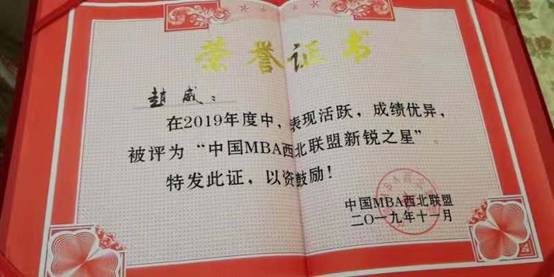 荣誉证书
赵威：
在2019年度中，表现活跃，成绩优异，
被评为“中国MBA西北联盟新锐之星”
特发此证，以资鼓励！
中国MBA西北联盟
二〇一九年十一月